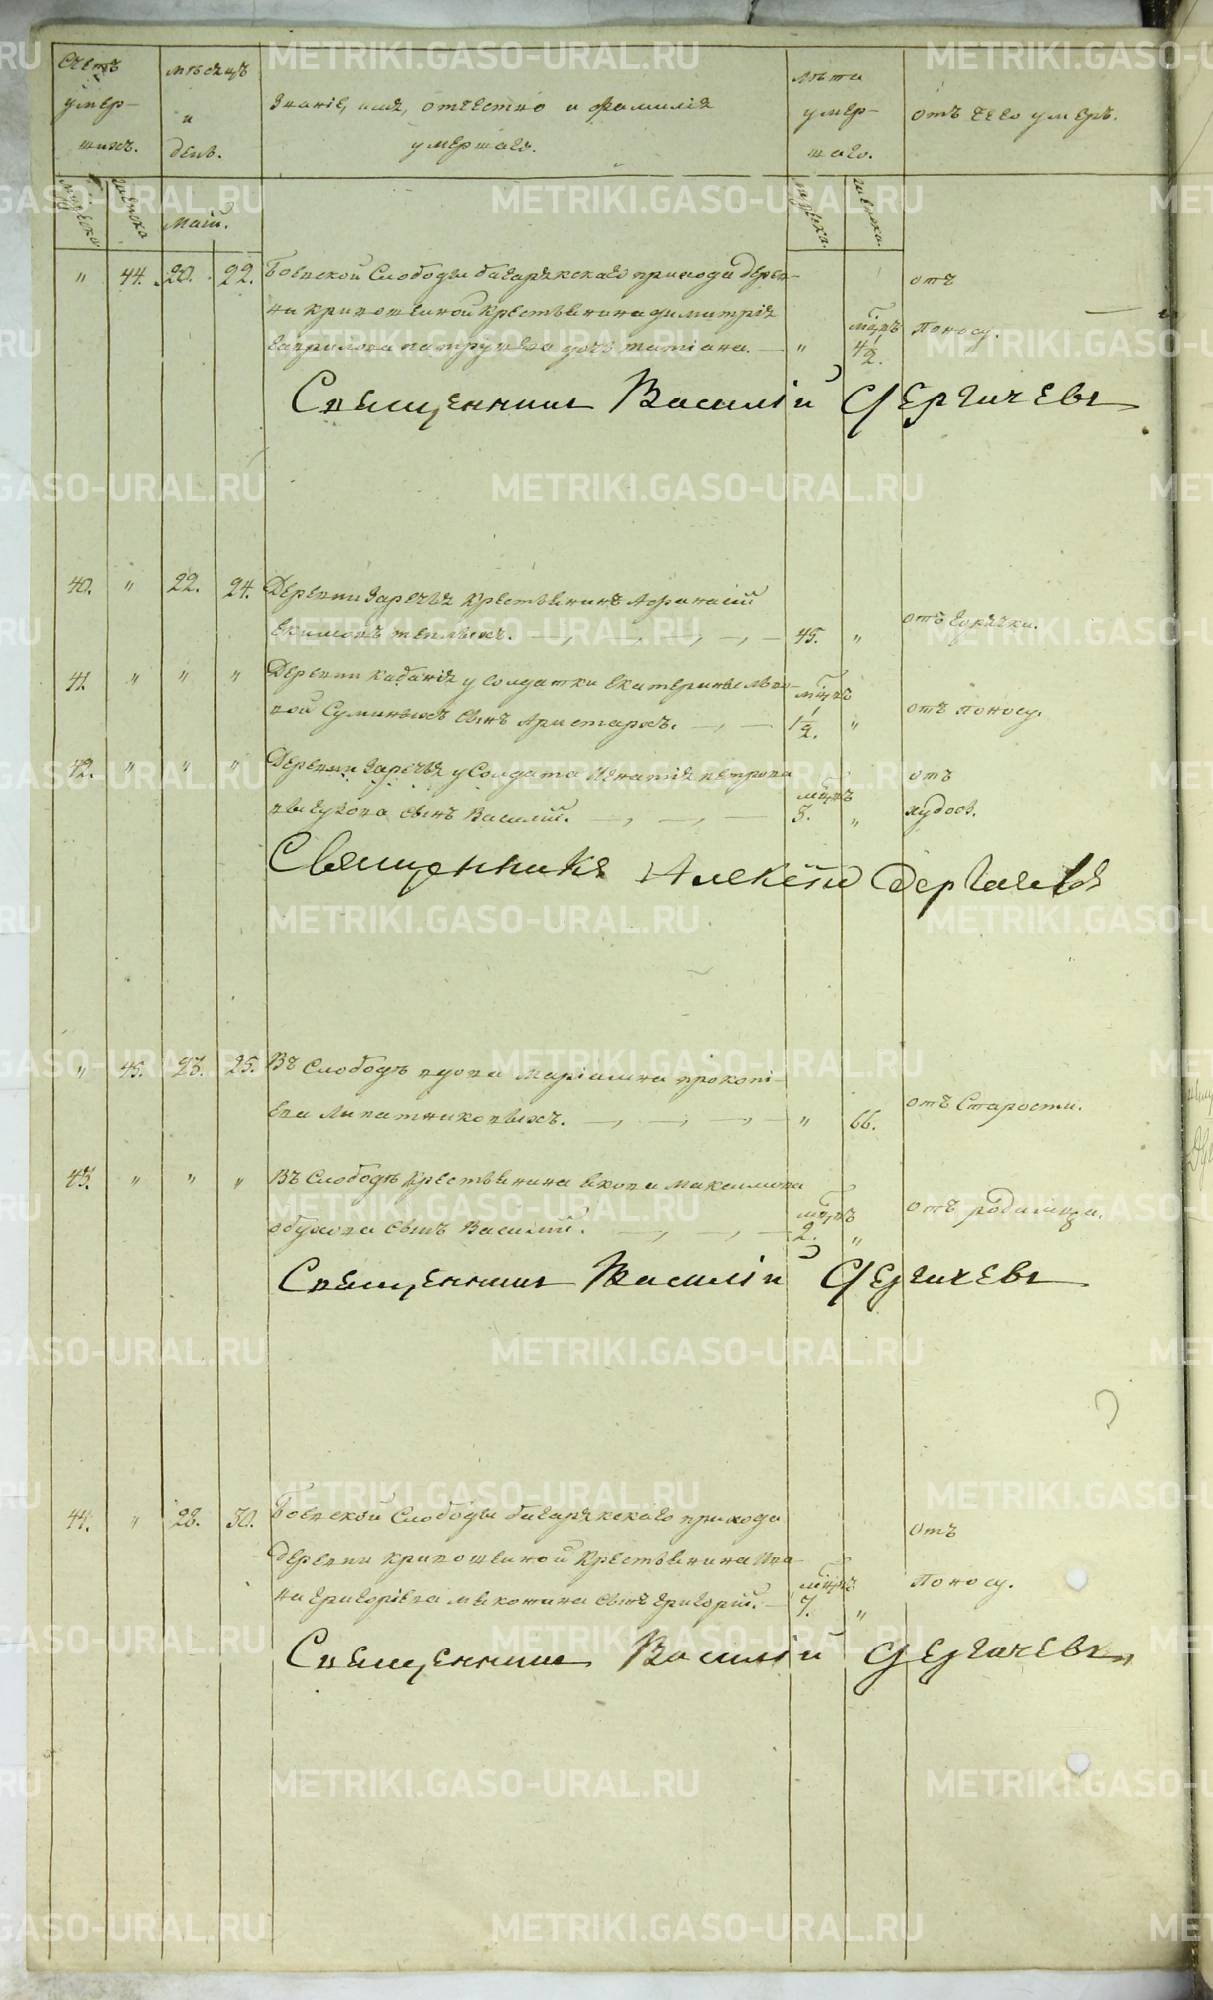 Счетъ умер- шихъ.
мѣсяцъ и день.
Званіе, имя, отчество и фамилія
умершаго.
лѣта умер- шаго.
отъ чего умеръ.
мужеска женска Маій. мужеска. женска.
" 44. 20. 22. Боевской Слободы багаряк­скаго прихода дерев-
ни кривошеиной Крестьянина димитрія
Гаврилова патрушева дочь татіана. — " мѣцъ 4 1/2. отъ поносу.
Священникъ Василій Дергачевъ
40. " 22. 24. Деревни Заречья Крестьянинъ Афанасій
Екимовъ теплыхъ. — 45. " отъ горячки.
41. " " " Деревни кабанья у солдатки Екатерины
Суминыхъ сынъ Аристархъ. — мѣцъ 1 1/2. " отъ поносу.
42. " " " Деревни Заречья у Солдата Игнатія петрова
сынъ Василій. — мѣцъ 5. " отъ
Священникъ Алексѣй Дергачевъ
" 45. 23. 25. Въ Слободѣ вдова Маріамна прокопі-
ева Липатниковыхъ. — " 66. отъ Старости.
43. " " " Въ Слободѣ Крестьянина Якова Максимова
обухова сынъ Василій. — мѣцъ 2. " отъ родимца.
Священникъ Василій Дергачевъ
44. " 28. 30. Боевской Слободы багаряк­скаго прихода
деревни кривошеиной Крестьянина Ива-
на Григоріева мякотина сынъ Григорій. — мѣцъ 7. " отъ поносу.
Священникъ Василій Дергачевъ
METRIKI.GASO-URAL.RU